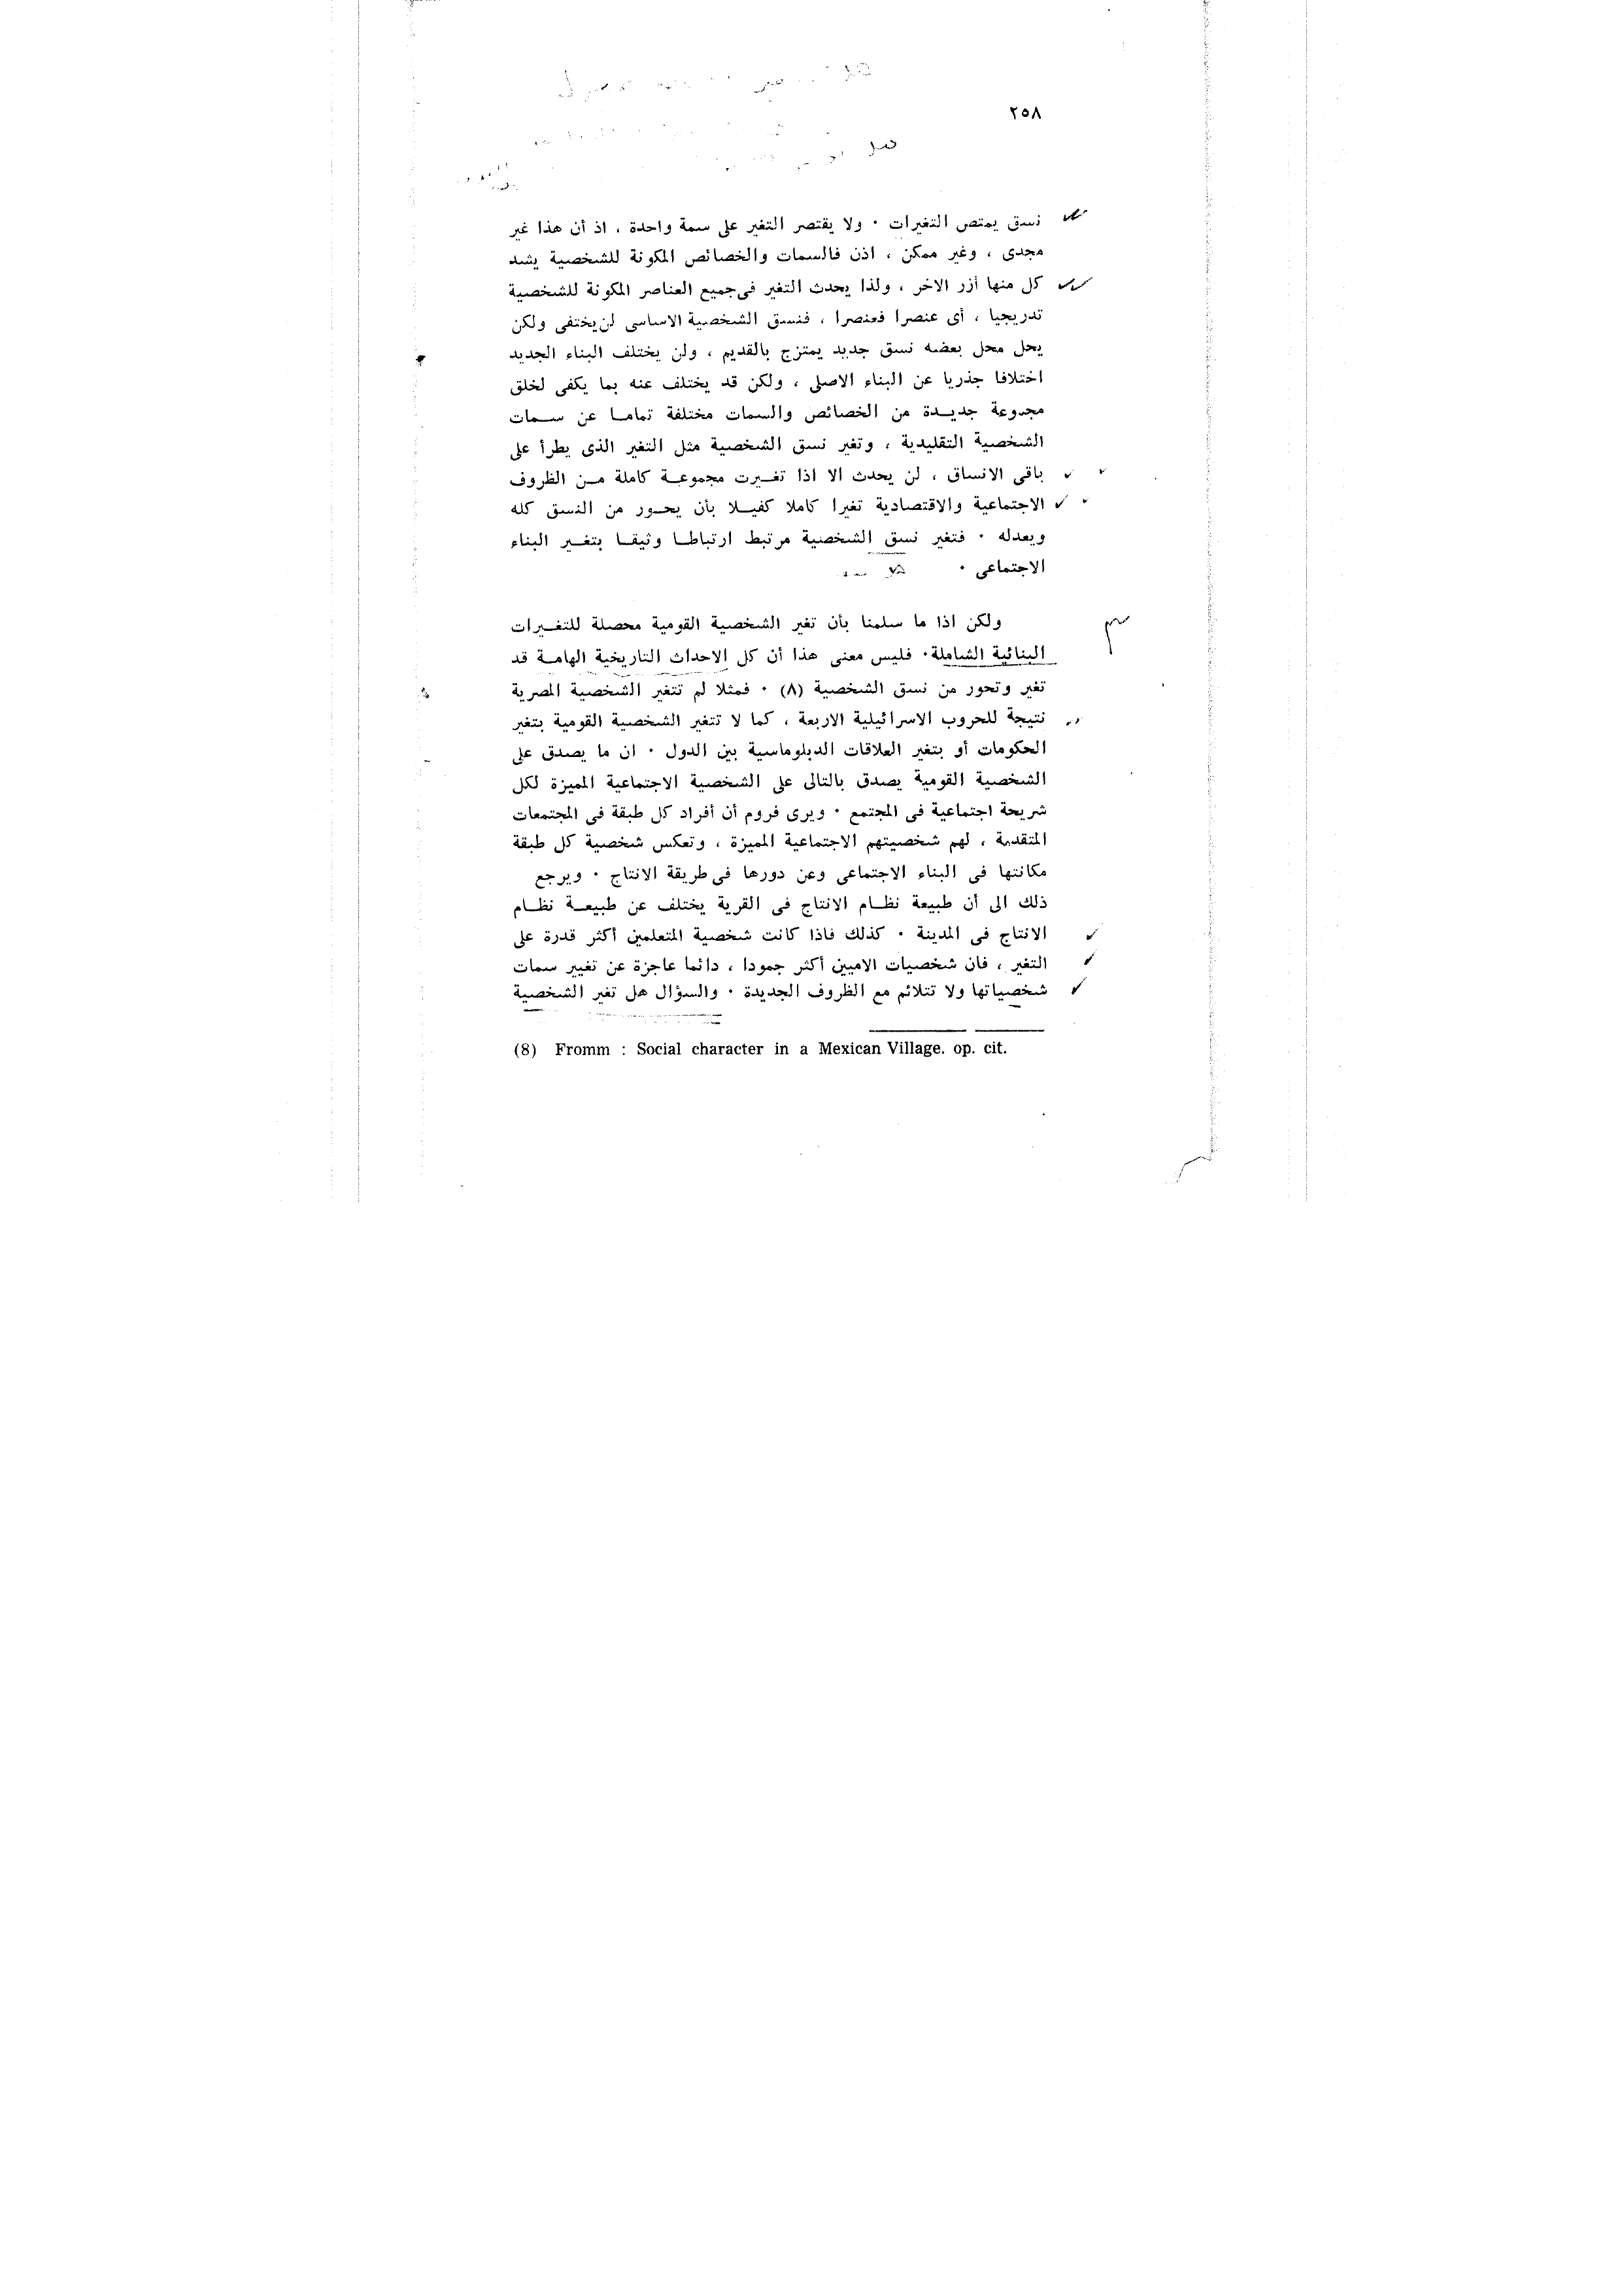 ٢٥٨
نسق يمتص التغيرات ٠ ولا يقتصر التغير على سمة واحدة ، اذ أن هذا غير
مجدى ، وغير ممكن ، اذن فالسمات والخصائص المكونة للشخصية يشد
كل منها أزر الاخر ، ولذا يحدث التغير فى جميع العناصر المكونة للشخصية
تدريجيا ، أى عنصرا فعنصرا ، فنسق الشخصية الاساسى لن يختفى ولكن
يحل محل بعضه نسق جديد يمتزج بالقديم ، ولن يختلف البناء الجديد
اختلافا جذريا عن البناء الاصلى ، ولكن قد يختلف عنه بما يكفى لخلق
مجموعة جديـدة من الخصائص والسمات مختلفة تمامـا عن سـمات
الشخصية التقليدية ، وتغير نسق الشخصية مثل التغير الذى يطرأ على
باقى الانساق ، لن يحدث الا اذا تغـيرت مجموعـة كاملة مـن الظروف
الاجتماعية والاقتصادية تغيرا كاملا كفيـلا بأن يحـور من النسق كله
ويعدله ٠ فتغير نسق الشخصية مرتبط ارتباطـا وثيقـا بتغـير البناء
الاجتماعى ٠
ولكن اذا ما سلمنا بأن تغير الشخصية القومية محصلة للتغـيرات
البنائية الشاملة٠ فليس معنى هذا أن كل الاحداث التاريخية الهامـة قد
تغير وتحور من نسق الشخصية (٨) ٠ فمثلا لم تتغير الشخصية المصرية
نتيجة للحروب الاسرائيلية الاربعة ، كما لا تتغير الشخصية القومية بتغير
الحكومات أو بتغير العلاقات الدبلوماسية بين الدول ٠ ان ما يصدق على
الشخصية القومية يصدق بالتالى على الشخصية الاجتماعية المميزة لكل
شريحة اجتماعية فى المجتمع ٠ ويرى فروم أن أفراد كل طبقة فى المجتمعات
المتقدمة ، لهم شخصيتهم الاجتماعية المميزة ، وتعكس شخصية كل طبقة
مكانتها فى البناء الاجتماعى وعن دورها فى طريقة الانتاج ٠ ويرجع
ذلك الى أن طبيعة نظـام الانتاج فى القرية يختلف عن طبيعـة نظـام
الانتاج فى المدينة ٠ كذلك فاذا كانت شخصية المتعلمين أكثر قدرة على
التغير ، فان شخصيات الاميين أكثر جمودا ، دائما عاجزة عن تغيير سمات
شخصياتها ولا تتلائم مع الظروف الجديدة ٠ والسؤال هل تغير الشخصية
(8) Fromm : Social character in a Mexican Village. op. cit.